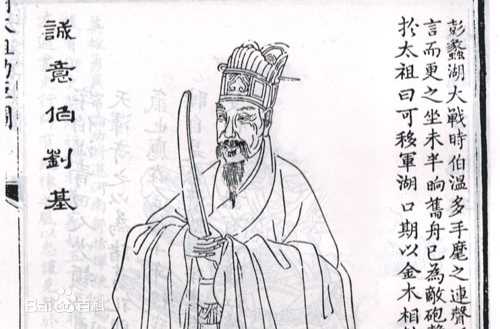 彭蠡湖大戰時伯溫多手麾之連聲
言而更之坐未半晌舊舟已為敵砲
扵太祖曰可移軍湖口期以金木相
誠意伯劉基
太祖功臣圖
Bai百科